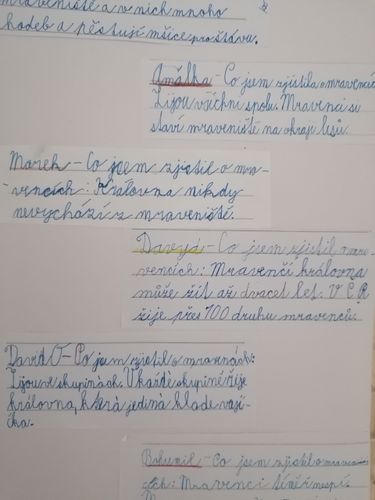 mraveniště a v nich mnoho
hodeb a pěstují mšice pro šťávu.
Amálka - Co jsem zjistila o mravencích
Žijou všichni spolu. Mravenci si
staví mraveniště na okraji lesů.
Marek - Co jsem zjistil o mra-
-vencích: Královna nikdy
nevychází z mraveniští.
Davyd - Co jsem zjistil o mra-
vencích: Mravenčí královna
může žít až dvacet let. V ČR
žije přes 100 druhu mravenců.
David O - Co jsem zjistil o mravencích:
Žijou ve skupinách. V každé skupině žije
královna, která jediná klade vají-
čka.
Bohumil - Co jsem zjistil o mraven-
cích: Mravenci téměř nespí.